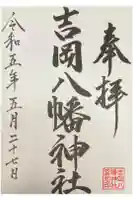 奉拝
吉岡八幡神社
令和五年五月二十七日